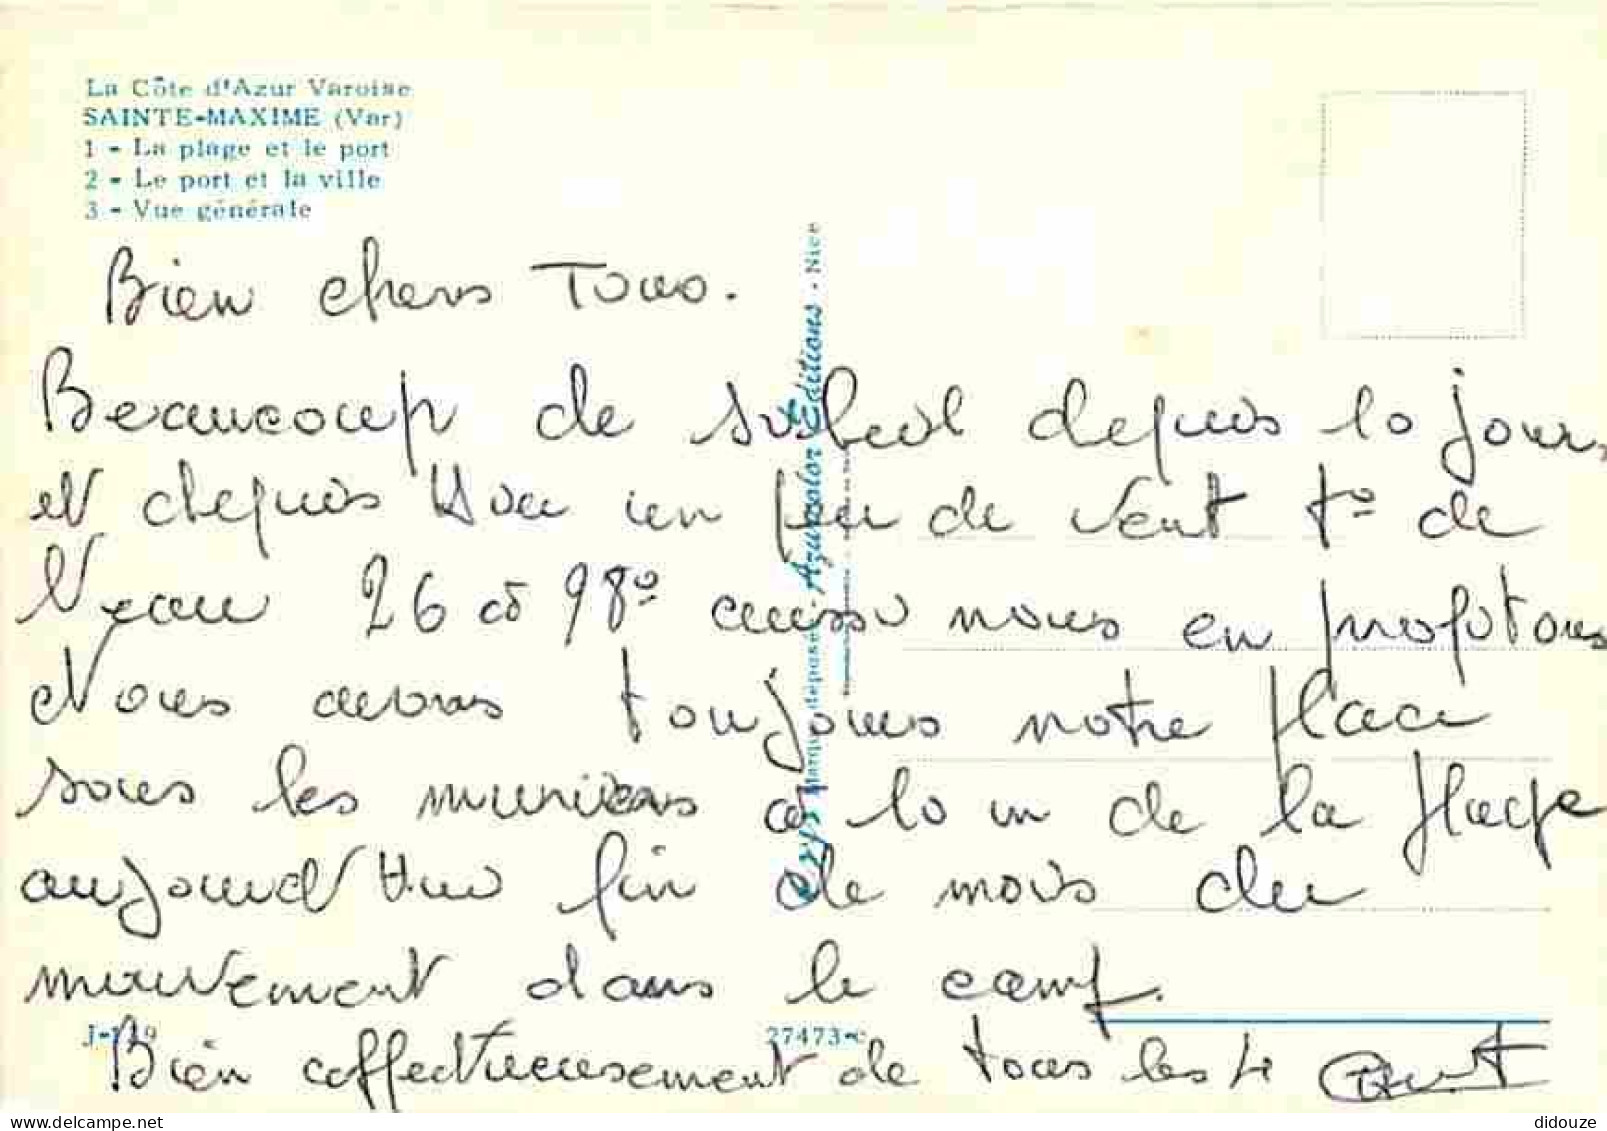 La Côte d'Azur Varoise
SAINTE-MAXIME (Var)
1 - La plage et le port
2 - Le port et la ville
3 - Vue générale
Bien chers Tous.
Beaucoup de soleil depuis 10 jours
et depuis hier un peu de vent t° de
l'eau 26 à 28° aussi nous en profitons
Nous avons toujours notre place
sous les muriers à 10 m de la plage
aujourd'hui fin de mois du
mouvement dans le camp.
Bien affectueusement de tous les 4
Marque déposée - Azurcolor Editions - Nice
J-119
27473-c
delcampe.net
didouze